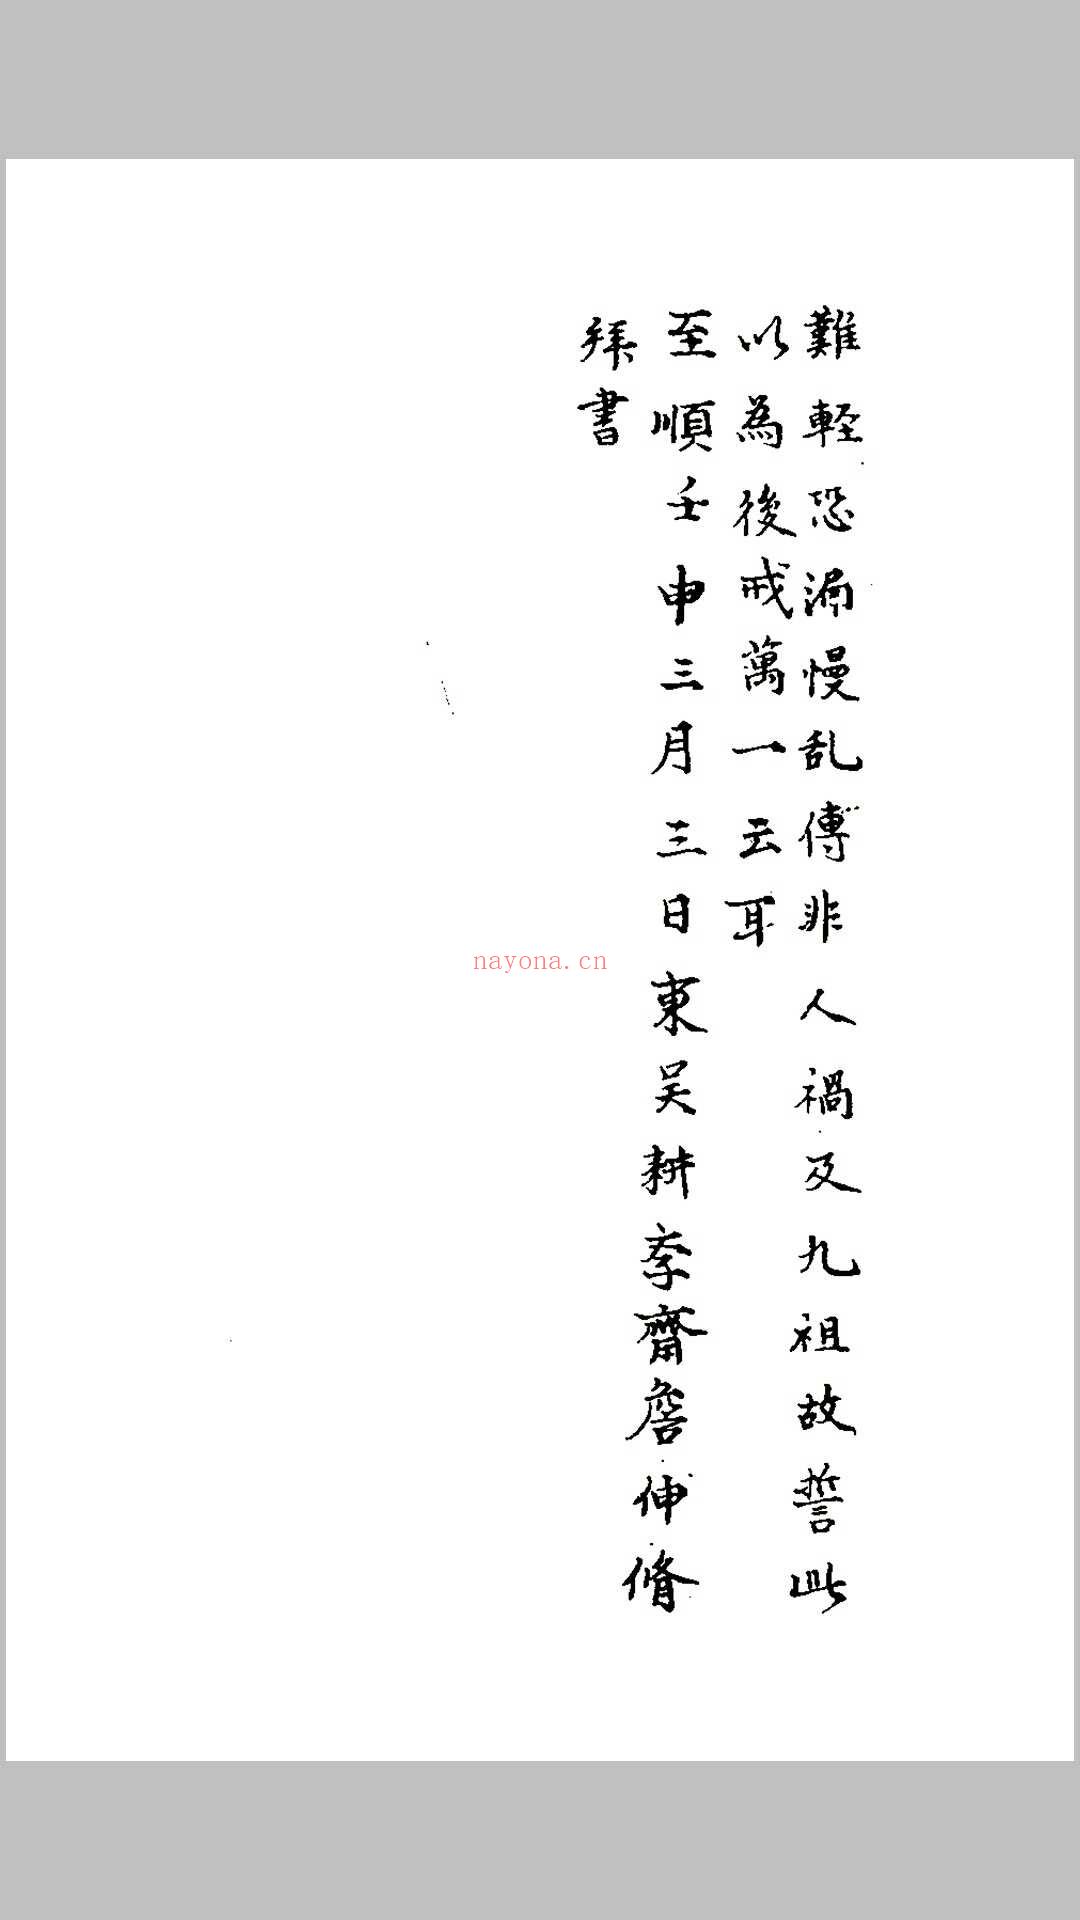 難輕恐漏慢乱傳非人禍及九祖故誓此
以為後戒萬一云耳
至順壬申三月三日東吴耕孛齋詹仲脩
拜書
nayona.cn